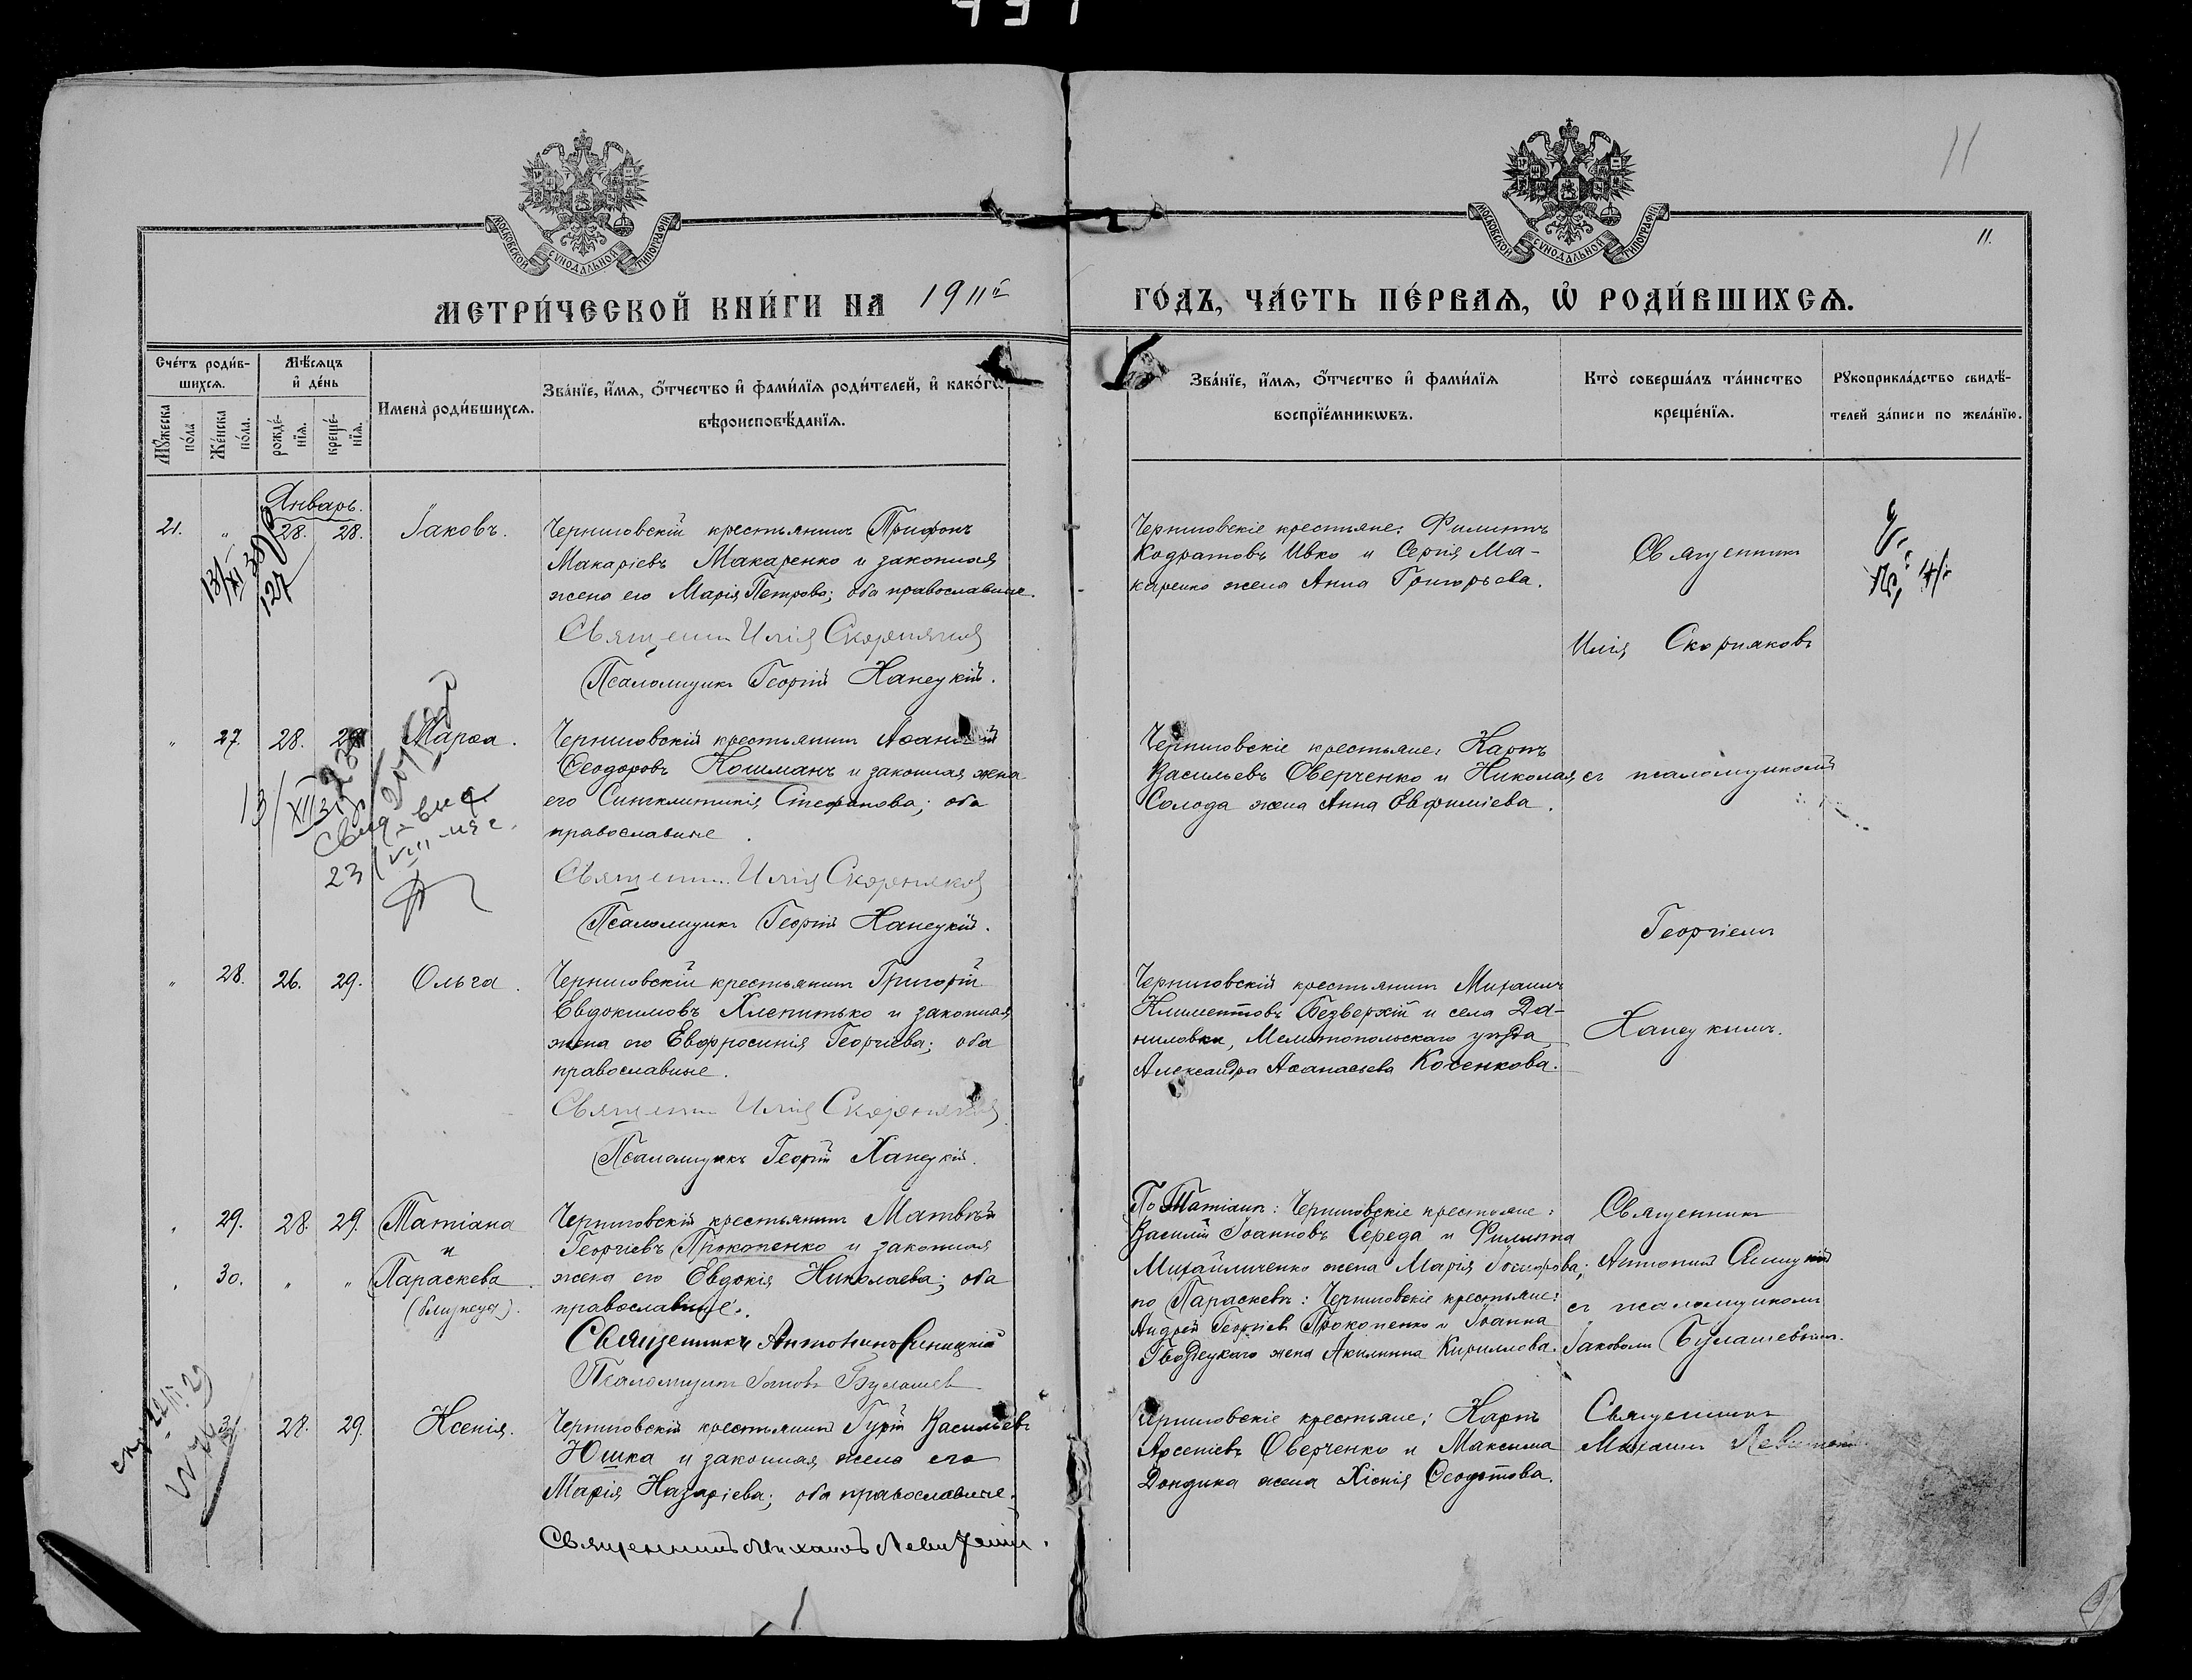 11
11.
МОСКОВСКОЙ СѴНОДАЛЬНОЙ ТИПОГРАФІИ
МОСКОВСКОЙ СѴНОДАЛЬНОЙ ТИПОГРАФІИ
МЕТРИ́ЧЕСКОЙ КНИ́ГИ НА 1911й
ГО́ДЪ, ЧА́СТЬ ПЕ́РВАѦ, Ѡ҆ РОДИ́ВШИХСѦ.
Сче́тъ роди́в-
шихсѧ.
Мꙋ́жеска по́ла
Же́нска по́ла.
Мѣ́сѧцъ
и҆ де́нь
рожде́-
нїѧ.
креще́-
нїѧ.
Имена̀ роди́вшихсѧ.
Зва́нїе, и҆́мѧ, ѻ҆́тчество и҆ фами́лїѧ роди́телей, и҆ како́гѡ
вѣроисповѣ́данїѧ.
Зва́нїе, и҆́мѧ, ѻ҆́тчество и҆ фами́лїѧ
воспрїе́мникѡвъ.
Кто̀ соверша́лъ та́инство
креще́нїѧ.
Рꙋкоприкла́дство свидѣ́-
телей за́писи по жела́нїю.
Январь.
21. " 28. 28. Іаковъ.
Черниговскій крестьянинъ Трифонъ
Макаріевъ Макаренко и законная
жена его Марія Петрова; оба православные.
Священникъ Илія Скорняковъ
Псаломщикъ Георгій Ханецкій.
Черниговскіе крестьяне: Филиппъ
Кодратовъ Ивко и Сергія Ма-
каренко жена Анна Григорьева.
Священникъ
Илія Скорняковъ
" 27. 28. Марѳа.
Черниговскій крестьянинъ Аѳанасій
Ѳеодоровъ Кошманъ и законная жена
его Синклитикія Стефанова; оба
православные.
Священникъ Илія Скорняковъ
Псаломщикъ Георгій Ханецкій.
Черниговскіе крестьяне: Карпъ
Васильевъ Оверченко и Николая
Солода жена Анна Евфиміева.
съ псаломщикомъ
Георгіемъ
" 28. 26. 29. Ольга.
Черниговскій крестьянинъ Григорій
Евдокимовъ Хлепитько и законная
жена его Евфросинія Георгіева; оба
православные.
Священникъ Илія Скорняковъ
Псаломщикъ Георгій Ханецкій.
Черниговскій крестьянинъ Михаилъ
Климентовъ Безверхій и села Да-
ниловки, Мелитопольскаго уѣзда,
Александра Аѳанасьева Косенкова.
Ханецкимъ.
" 29. 28. 29. Татіана
и
" 30. " " Параскева
(близнецы).
Черниговскій крестьянинъ Матвѣй
Георгіевъ Прокопенко и законная
жена его Евдокія Николаева; оба
православные.
Священникъ Антонинъ Синицкій
Псаломщикъ Іаковъ Булашев
По Татіанѣ: Черниговскіе крестьяне:
Василій Іоанновъ Середа и Филиппа
Михайличенко жена Марія;
по Параскевѣ: Черниговскіе крестьяне:
Андрей Георгіев Прокопенко и Іоанна
Гвоздецкаго жена Акилина Кириллова.
Священникъ
Антонинъ Синицкій
съ псаломщикомъ
Іаковомъ Булашевымъ.
31. 28. 29. Ксенія.
Черниговскій крестьянинъ Гурій Васильевъ
Юшка и законная жена его
Марія Назаріева; оба православные.
Священникъ Михаилъ
Черниговскіе крестьяне: Карпъ
Арсеніевъ Оверченко и Максима
Дондика жена Хіонія Ѳеодотова.
Священникъ
Михаилъ